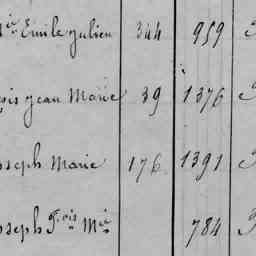 Emile Julien 344 959
Jean Marie 39 1376
oseph Marie 176 1391
oseph F.ois M.ie 784